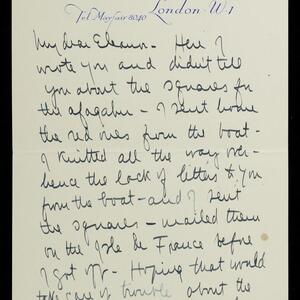 Tel. Mayfair 8040 London-W1
My dear Eleanor. Here I
wrote you and didn't tell
you about the squares for
the afagahn - I sent home
the red ones from the boat -
I knitted all the way over -
hence the lack of letters to you
from the boat - and I sent
the squares - mailed them
on the Isle de France before
I got off - Hoping that would
take care of trouble about the